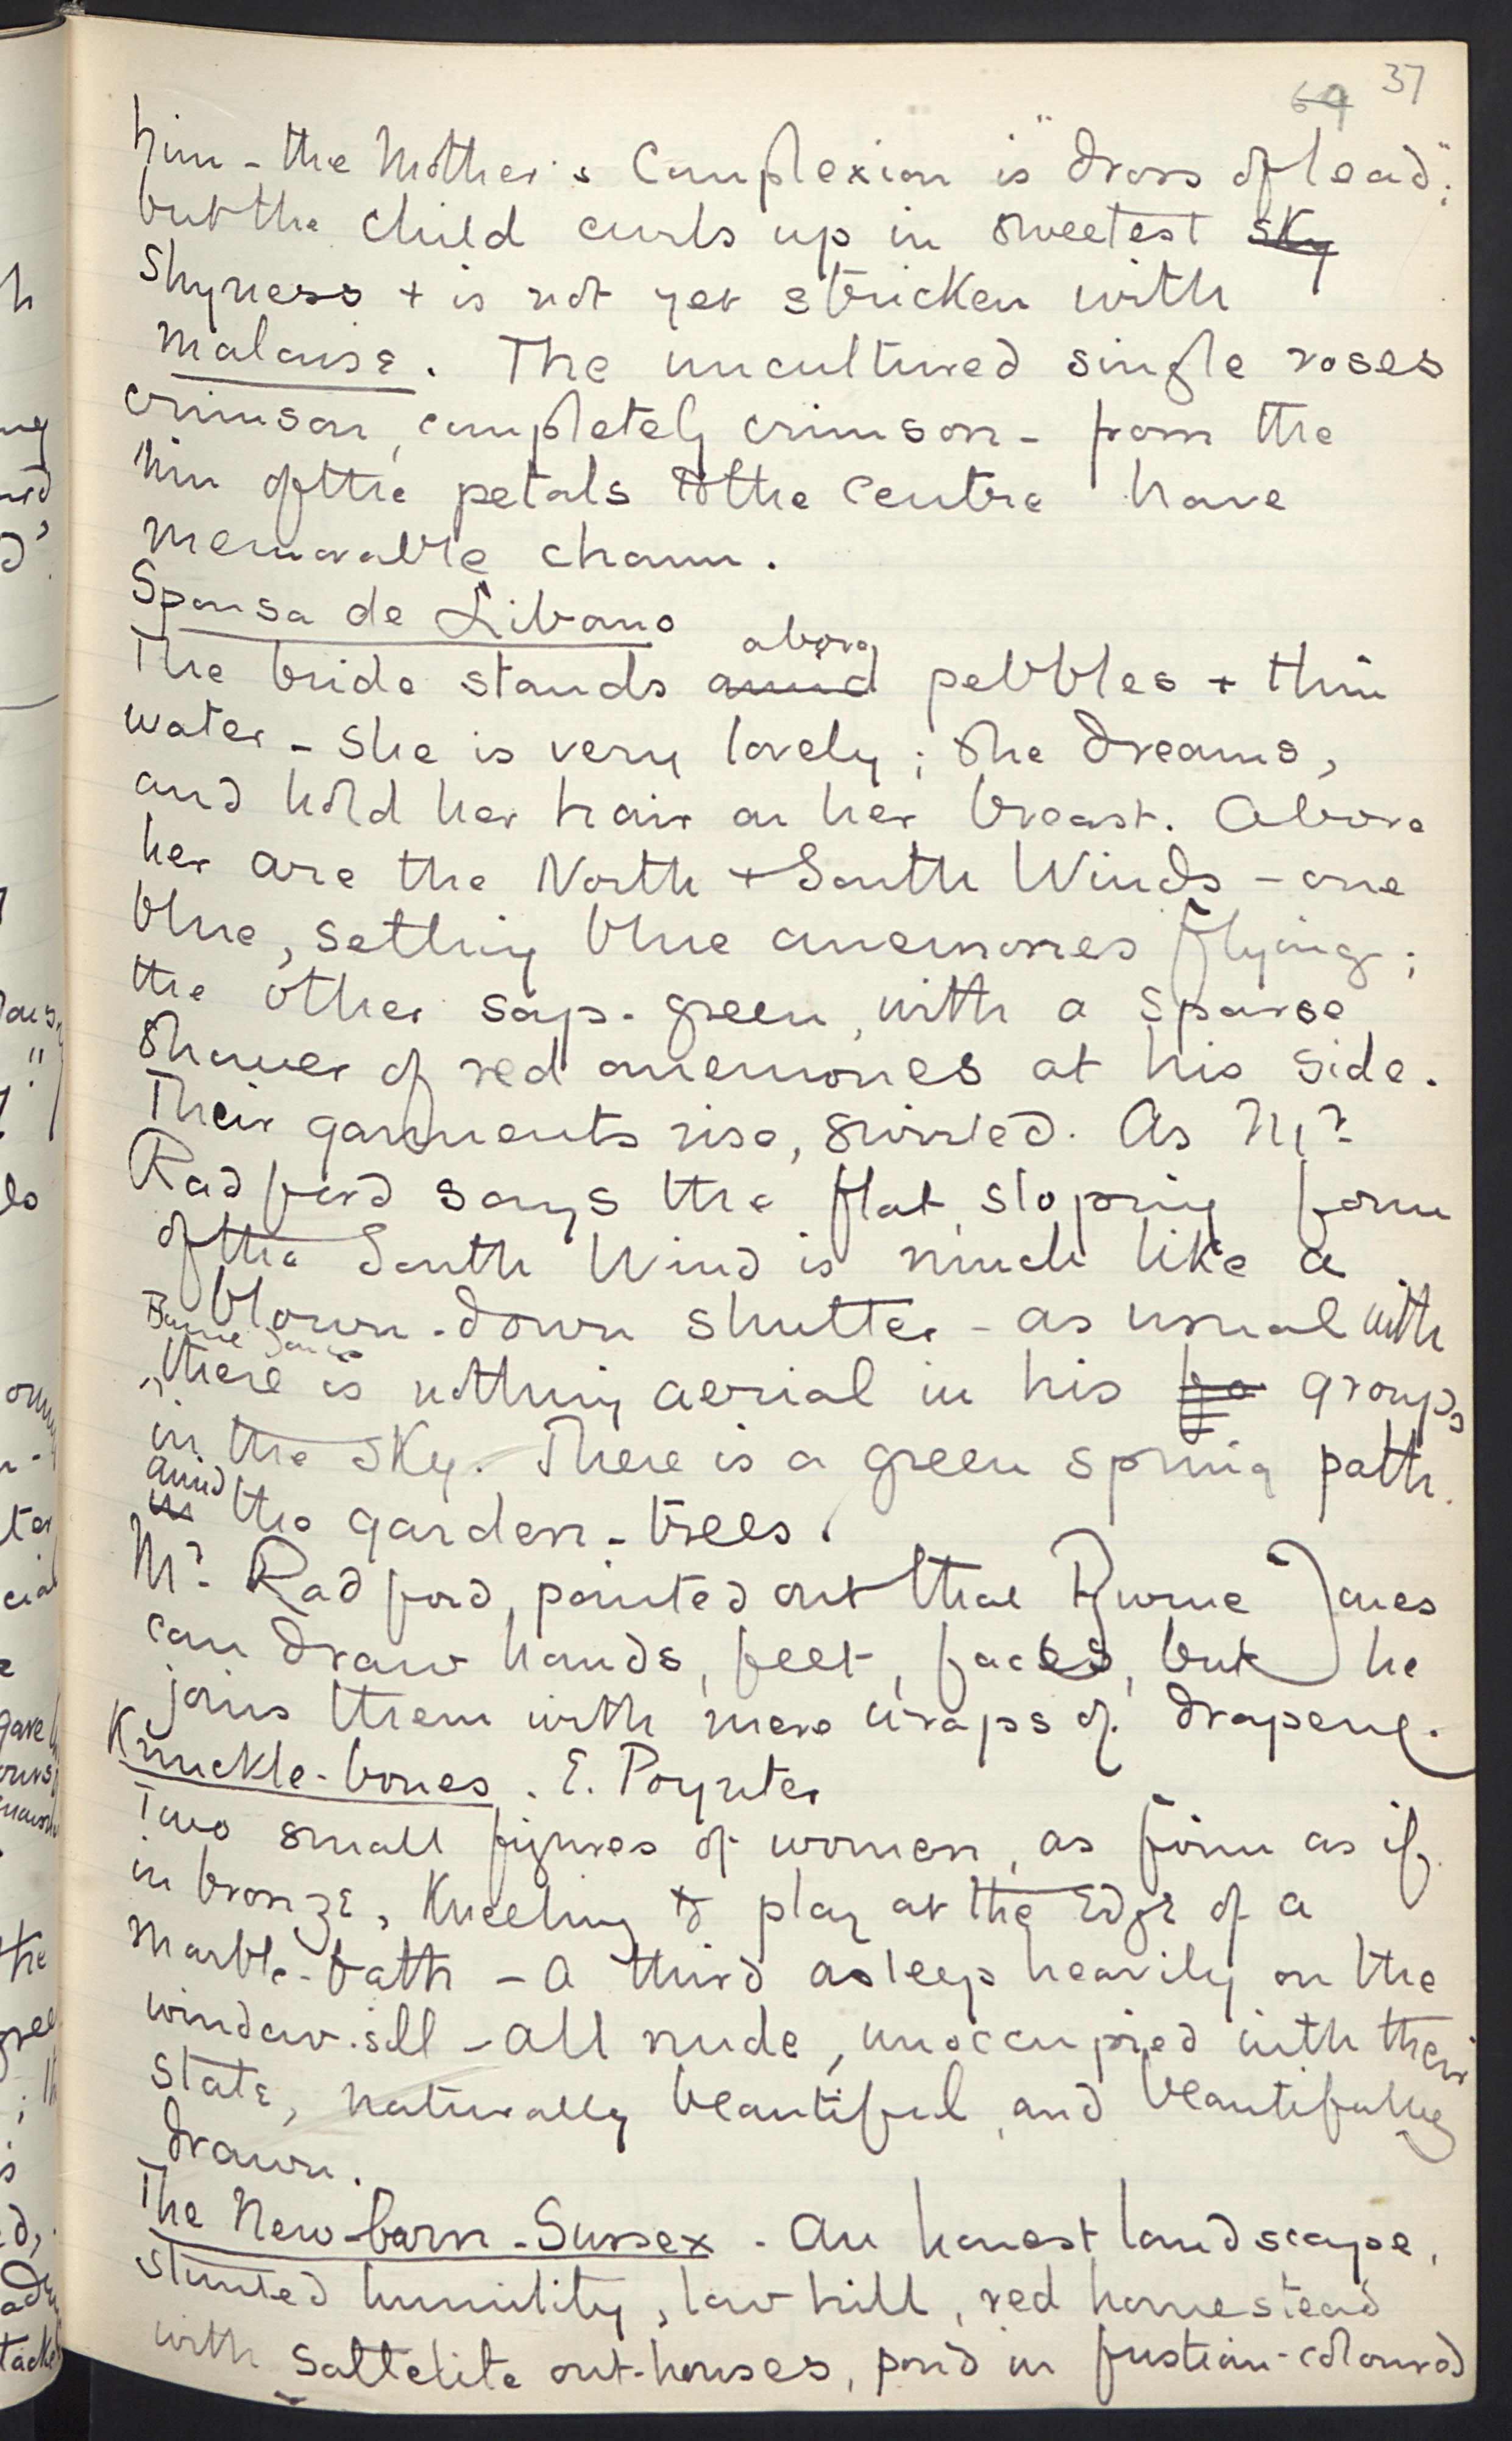 69 37
him - the Mother's Complexion is "dross of lead";
but the child curls up in sweetest sky
shyness + is not yet stricken with
malaise. The uncultured single roses
crimson, completely crimson - from the
rim of the petals to the centre have
memorable charm.
Sponsa de Libano
above
The bride stands amid pebbles + thin
water - she is very lovely; she dreams,
and hold her hair on her breast. Above
her are the North + South Winds - one
blue, setting blue anemones flying;
the other sap-green, with a sparse
shower of red anemones at his side.
Their garments rise, swirled. As Mr
Radford says the flat, sloping form
of the South Wind is much like a
blown-down shutter - as usual with
Burne Jones
there is nothing aerial in his groups
in the sky. There is a green spring path
amid
in the garden-trees.
Mr Radford, pointed out that Burne Jones
can draw hands, feet, faces, but he
joins them with mere wraps of drapery.
Knuckle-bones. E. Poynter
Two small figures of women, as firm as if
in bronze, kneeling to play at the edge of a
marble-bath - a third asleep heavily on the
window-sill - all nude, unoccupied with their
state, naturally beautiful, and beautifully
drawn.
The New-born - Sussex. An honest landscape,
stunted humility, low hill, red homestead
with sattelite out-houses, pond in fustian-coloured